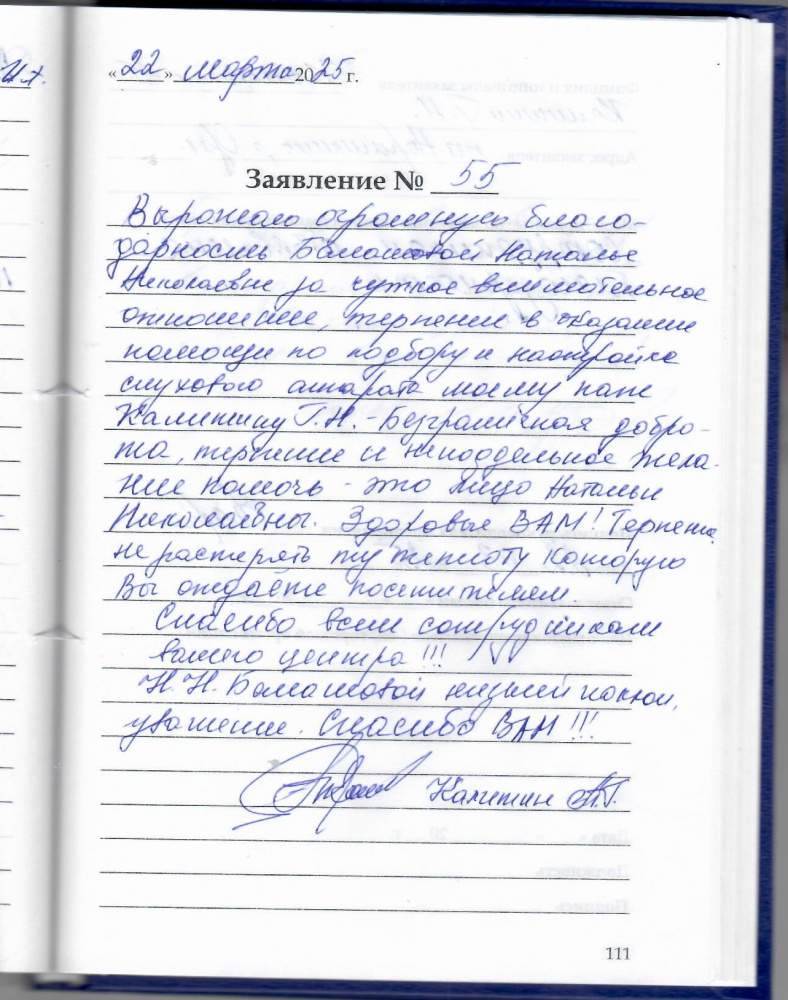 «22» марта 2025 г.
Заявление № 55
Выражаю огромную благо-
дарность Балашовой Наталье
Николаевне за чуткое внимательное
отношение, терпение в оказании
помощи по подбору и настройке
слухового аппарата моему папе
Калитину Г.Н. - Безграничная добро-
та, терпение и неподдельное жела-
ние помочь - это лицо Натальи
Николаевны. Здоровья ВАМ! Терпения
не растерять ту теплоту которую
Вы отдаёте посетителям.
Спасибо всем сотрудникам
вашего центра!!!
Н.Н. Балашовой низкий поклон,
уважение. Спасибо ВАМ!!!
Калитин
111